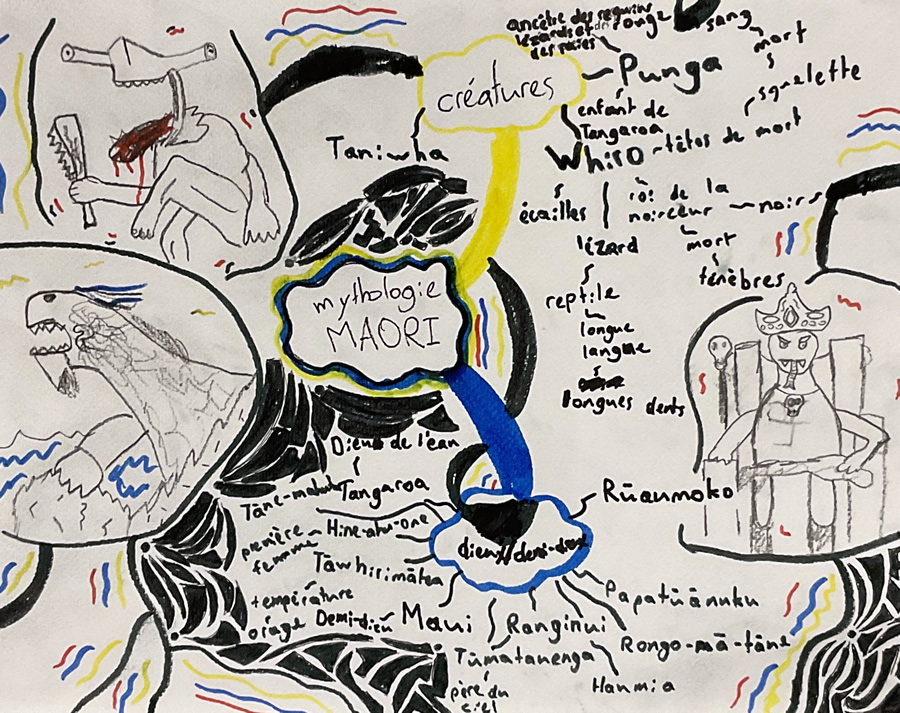 ancêtre des requins
lézards et des
des raies
rouge
sang
mort
squelette
créatures
Punga
enfant de
Tangaroa
Taniwha
Whiro
têtes de mort
écailles
roi de la
noirceur
noir
lézard
mort
ténèbres
reptile
longue
langue
longues dents
mythologie
MAORI
Dieu de l'eau
Tangaroa
Rūaumoko
Hine-ahu-one
première
femme
dieux/demi-dieux
Tāwhirimātea
température
orage
Demi-dieu
Maui
Ranginui
Papatūānuku
Rongo-mā-tāne
Tūmatauenga
Haumia
père du
ciel